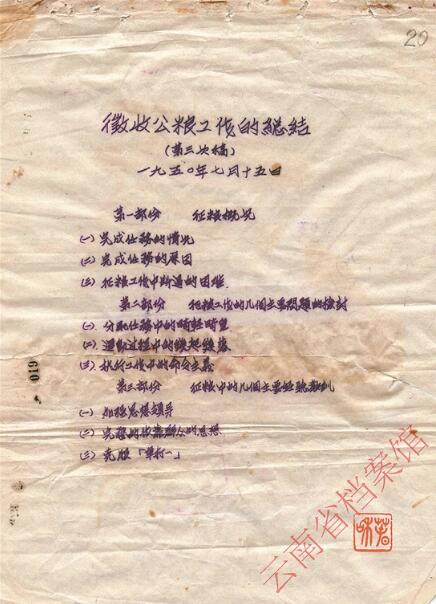 20
徵收公粮工作的總結
(第三次稿)
一九五〇年七月十五日
第一部份 征粮概况
(一) 完成任務的情况
(二) 完成任務的原因
(三) 征粮工作中所遇的困难
第二部份 征粮工作的几個主要問題的檢討
(一) 分配任務中的畸輕畸重
(二) 運動过程中的
(三) 执行工作中的命令主義
第三部份 征粮中的几個主要经驗教訓
(一) 加强思想領导
(二) 完整的依靠群众的思想
(三) 克服「單打一」
019
云南省档案馆